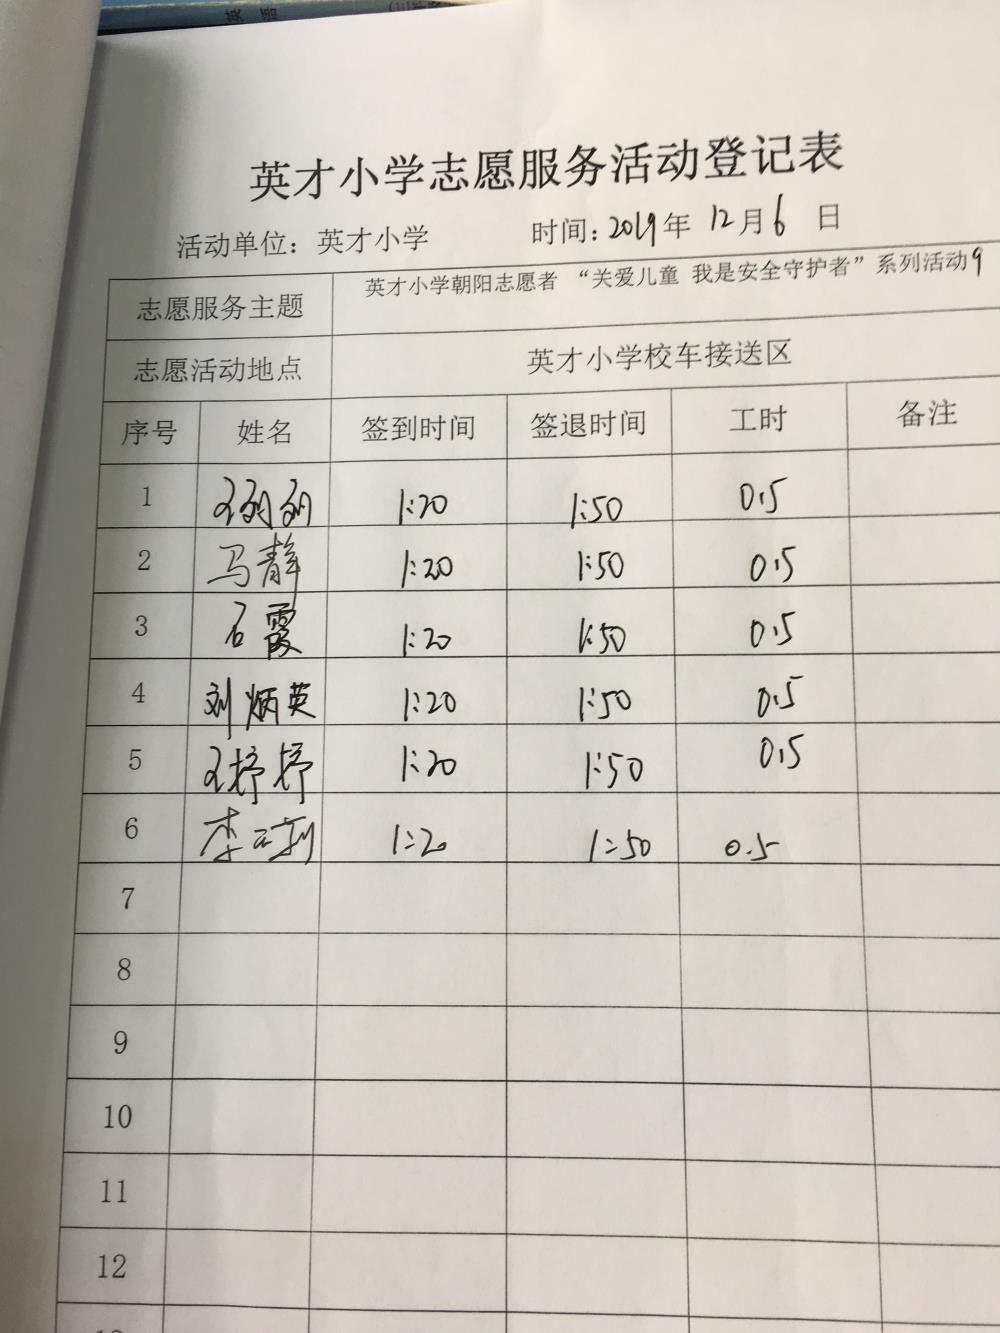 英才小学志愿服务活动登记表
活动单位：英才小学 时间：2019年 12月6 日
志愿服务主题 英才小学朝阳志愿者 “关爱儿童 我是安全守护者”系列活动9
志愿活动地点 英才小学校车接送区
序号 姓名 签到时间 签退时间 工时 备注
1 王 1:20 1:50 0.5
2 马静 1:20 1:50 0.5
3 石霞 1:20 1:50 0.5
4 刘炳英 1:20 1:50 0.5
5 王抒抒 1:20 1:50 0.5
6 李 1:20 1:50 0.5
7
8
9
10
11
12